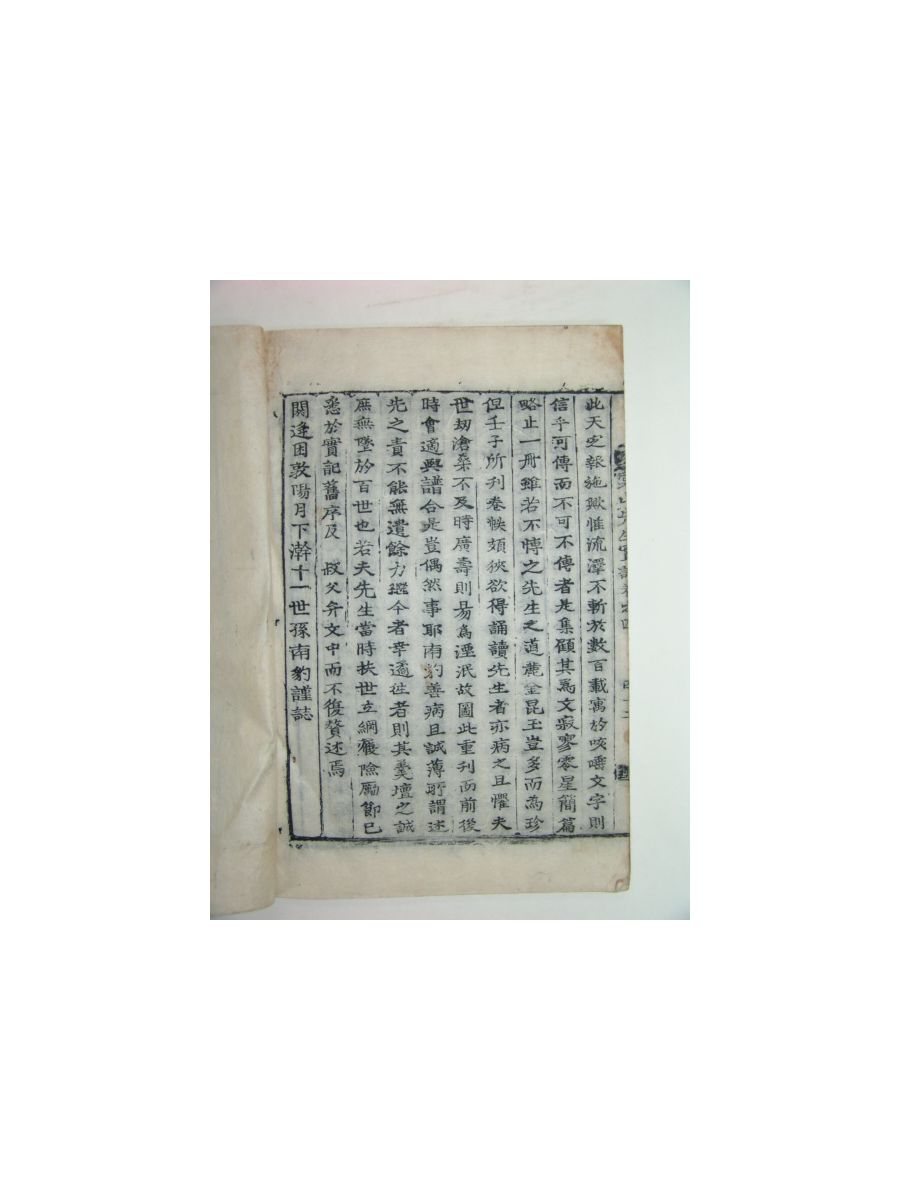 此天之報施歟惟流澤不斬於數百載寓於咳唾文字則
信乎可傳而不可不傳者是集顧其爲文寂寥零星簡篇
略止一冊雖若不博之先生之道麗金昆玉豈多而為珍
但壬子所刊卷帙頗狹欲得誦讀先生者亦病之且懼夫
世劫滄桑不及時廣壽則易為湮泯故圖此重刊而前後
時會適與譜合是豈偶然事耶南豹善病且誠薄所謂述
先之責不能無遺餘力繼今者幸遹徃者則其羹墻之誠
庶無墜於百世也若夫先生當時扶世立綱履險勵節已
悉於實記舊序及 叔父弁文中而不復贅述焉
閼逢困敦陽月下澣十一世孫南豹謹誌
先生實記卷之四